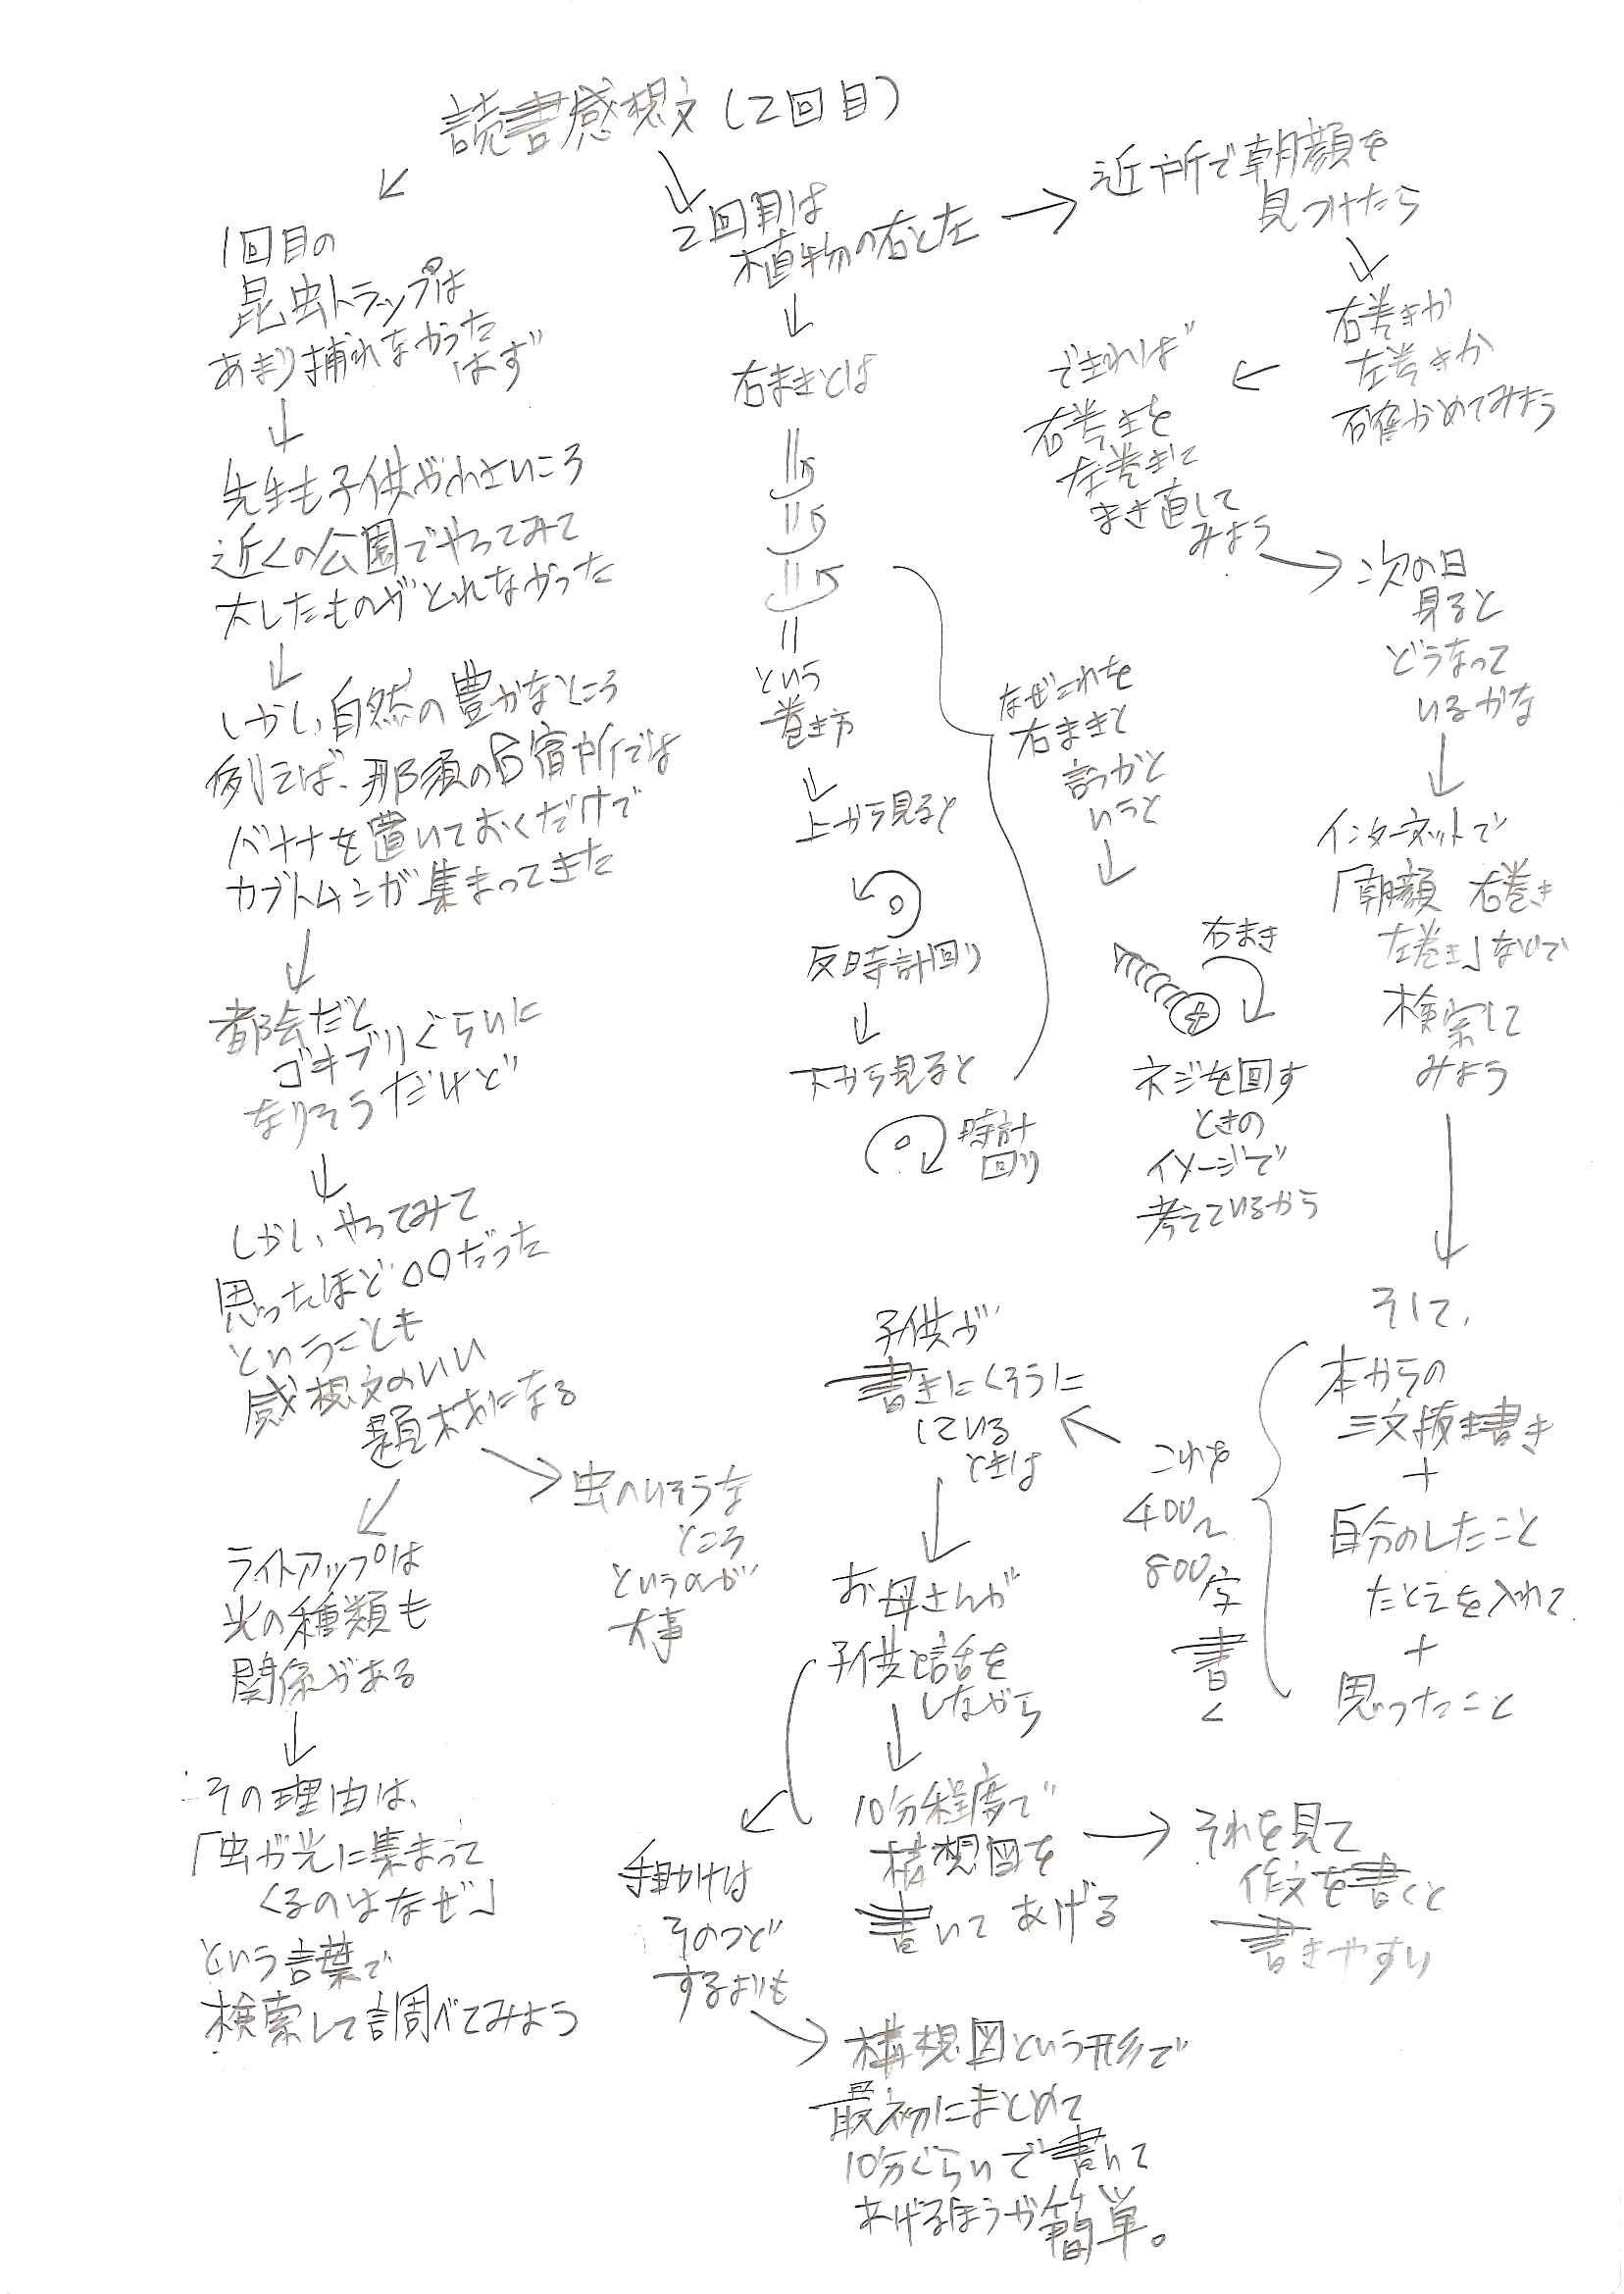 読書感想文(2回目)
1回目の
昆虫トラップは
あまり捕れなかった
はず
先生も子供が小さいころ
近くの公園でやってみて
大したものがとれなかった
しかし、自然の豊かなところ
例えば、那須の合宿所では
バナナを置いておくだけで
カブトムシが集まってきた
都会だと
ゴキブリぐらいに
なりそうだけど
しかし、やってみて
思ったほど〇〇だった
ということも
感想文のいい
題材になる
虫のいそうな
ところ
というのが
大事
ライトアップは
光の種類も
関係がある
その理由は、
「虫が光に集まって
くるのはなぜ」
という言葉で
検索して調べてみよう
2回目は
植物の右と左
右まきとは
という
巻き方
上から見ると
反時計回り
下から見ると
時計
回り
なぜこれを
右まきと
言うかと
いうと
右まき
ネジを回す
ときの
イメージで
考えているから
近所で朝顔を
見つけたら
右巻きか
左巻きか
確かめてみよう
できれば
右巻きを
左巻きに
まき直して
みよう
次の日
見ると
どうなって
いるかな
インターネットで
「朝顔 右巻き
左巻き」などで
検索して
みよう
そして、
本からの
三文抜き書き
+
自分のしたこと
たとえを入れて
+
思ったこと
これを
400〜
800字
書
く
子供が
書きにくそうに
している
ときは
お母さんが
子供と話を
しながら
10分程度で
構想図を
書いてあげる
それを見て
作文を書くと
書きやすい
手助けは
そのつど
するよりも
構想図という形で
最初にまとめて
10分ぐらいで書いて
あげるほうが簡単。